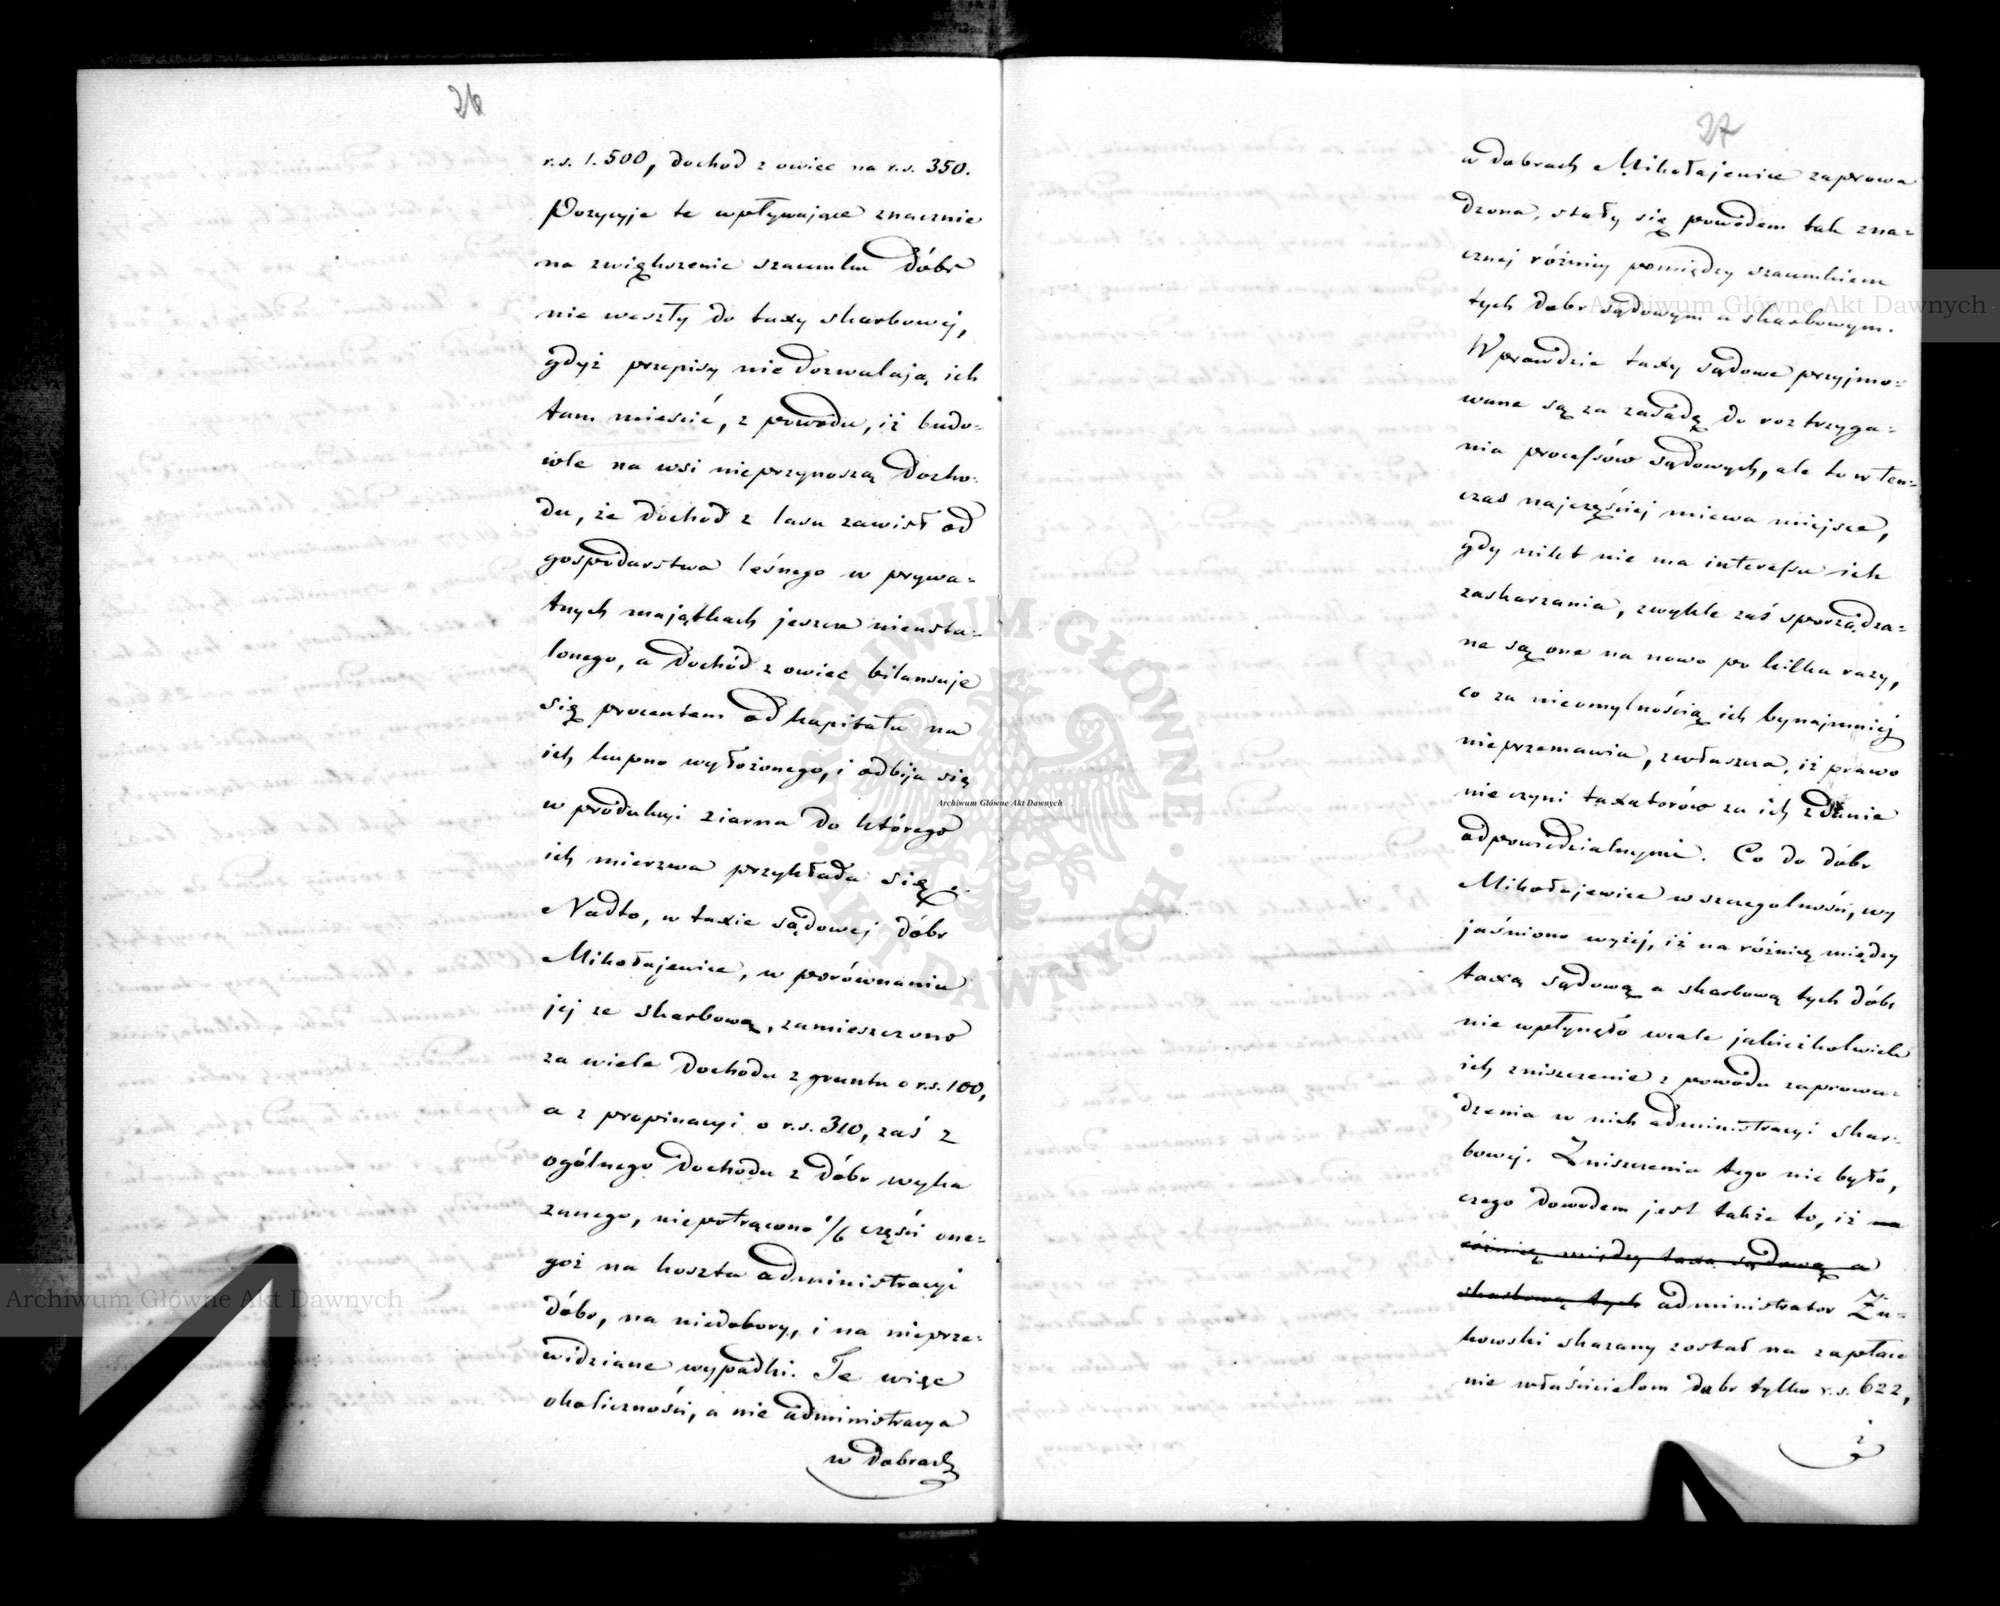 26
r.s. 1.500, dochod z owiec na r.s. 350.
Pozycyje te wpływające znacznie
na zwiększenie szacunku dóbr
nie weszły do taxy skarbowej,
gdyż przepisy nie dozwalają ich
tam mieścić, z powodu, iż budo-
wle na wsi nieprzynoszą docho-
du, że dochod z lasu zawisł od
gospodarstwa leśnego w prywa-
tnych majątkach jeszcze nieusta-
lonego, a dochód z owiec bilansuje
się procentem od kapitału na
ich kupno wyłożonego, i odbija się
w produkcyi ziarna do którego
ich mierzwa przykłada się.
Nadto, w taxie sądowej dóbr
Mikołajewice, w porównaniu
jej ze skarbową, zamieszczono
za wiele dochodu z gruntu o r.s. 100,
a z propinacyi o r.s. 310, zaś z
ogólnego dochodu z dóbr wyka
zanego, niepotrącono 1/6 części one-
goż na koszta administracyi
dóbr, na niedobory, i na nieprze-
widziane wypadki. Te więc
okoliczności, a nie administracya
w dobrach
27
w dobrach Mikołajewice zaprowa
dzona, stały się powodem tak zna-
cznej różnicy pomiędzy szacunkiem
tych dobr sądowym a skarbowym.
Wprawdzie taxy sądowe przyjmo-
wane są za zasadę do roztrzyga-
nia processów sądowych, ale to w ten-
czas najczęściej miewa miejsce,
gdy nikt nie ma interessu ich
zaskarzania, zwykle zaś sporządza-
ne są one na nowo po kilka razy,
co za nieomylnością ich bynajmniej
nieprzemawia, zwłaszcza, iż prawo
nie czyni taxatorów za ich zdanie
odpowiedzialnymi. Co do dóbr
Mikołajewice w szczególności, wy
jaśniono wyżej, iż na różnicę między
taxą sądową a skarbową tych dóbr
nie wpłynęło wcale jakieżkolwiek
ich zniszczenie z powodu zaprowa-
dzenia w nich administracyi skar-
bowej. Zniszczenia tego nie było,
czego dowodem jest także to, iż na
różnicę między taxą sądową a
skarbową tych administrator Żu-
kowski skazany został na zapłace
nie właścicielom dobr tylko r.s. 622,
i
Archiwum Główne Akt Dawnych
Archiwum Główne Akt Dawnych
Archiwum Główne Akt Dawnych
ARCHIWUM GŁÓWNE AKT DAWNYCH